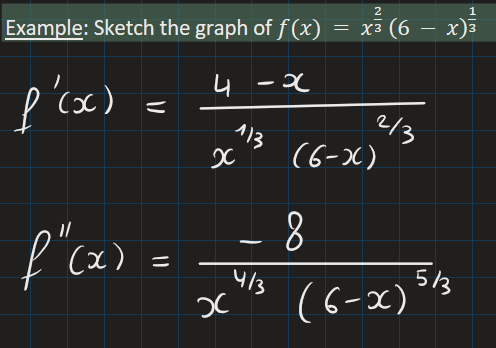 Example: Sketch the graph of f(x) = x^(2/3) (6 − x)^(1/3)
f'(x) = (4 − x) / (x^(1/3) (6−x)^(2/3))
f''(x) = −8 / (x^(4/3) (6−x)^(5/3))